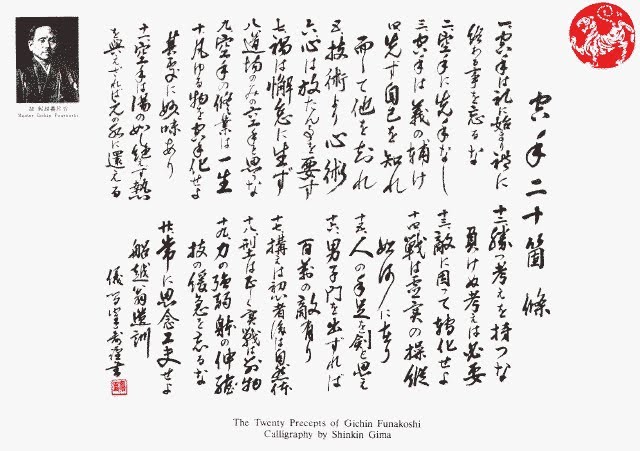 空手二十箇條
一空手は礼に始まり礼に
終わる事を忘るな
二空手に先手なし
三空手は義の輔け
四先ず自己を知れ
而して他を知れ
五技術より心術
六心は放たん事を要す
七禍は懈怠に生ず
八道場のみの空手と思うな
九空手の修業は一生
十凡ゆる物を空手化せよ
其処に妙味あり
十一空手は湯の如し絶えず熱
を与えざれば元の水に還える
十二勝つ考えを持つな
負けぬ考えは必要
十三敵に因って轉化せよ
十四戦は虚実の操縦
如何に在り
十五人の手足を剣と思え
十六男子門を出ずれば
百万の敵有り
十七構えは初心者後は自然体
十八型は正しく実戦は別物
十九力の強弱体の伸縮
技の緩急を忘るな
廿常に思念工夫せよ
船越翁遺訓
儀間 書
Master Gichin Funakoshi
The Twenty Precepts of Gichin Funakoshi
Calligraphy by Shinkin Gima